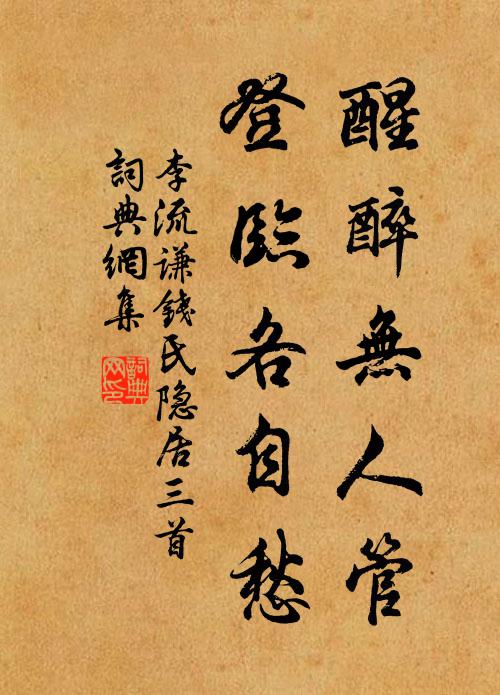 醒醉無人管
登臨各自愁
李流谦錢氏隐居三首
詞典網集
詞典网印